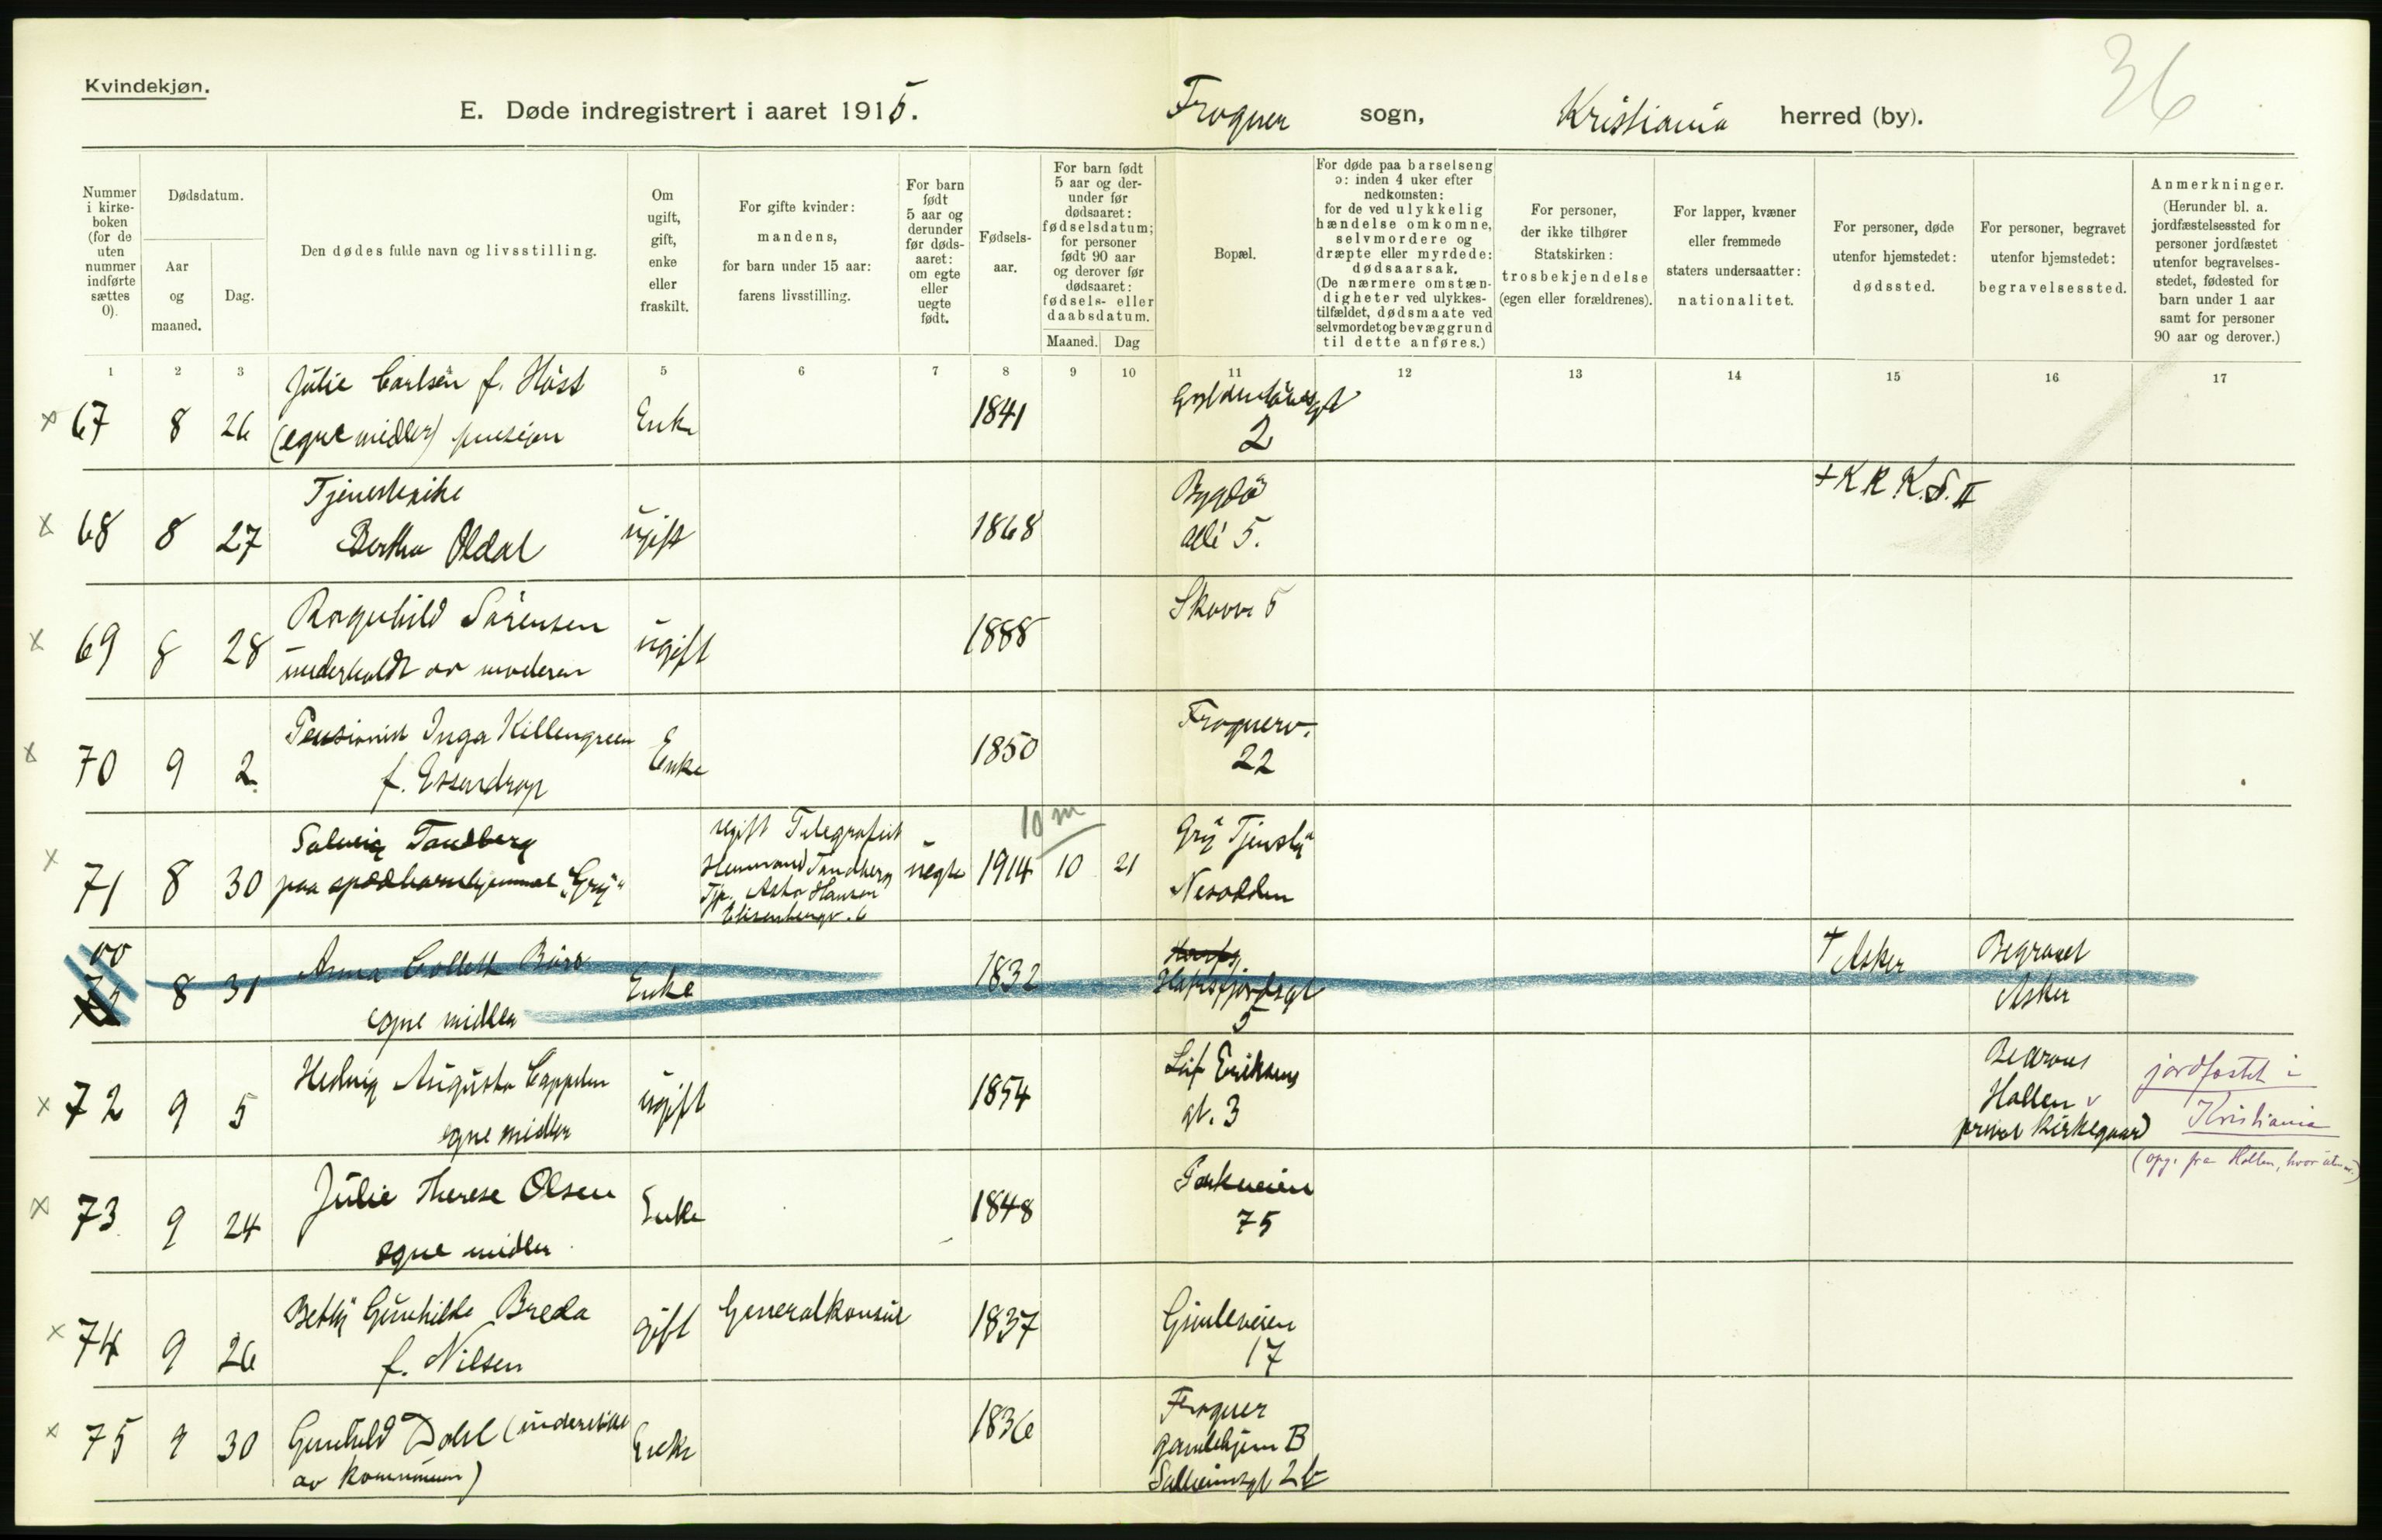 36
Kvindekjøn.
E. Døde indregistrert i aaret 1915. Frogner sogn, Kristiania herred (by).
Nummer i kirke-boken (for de uten nummer indførte sættes 0).
Dødsdatum.
Aar og maaned.
Dag.
Den dødes fulde navn og livsstilling.
Om ugift, gift, enke eller fraskilt.
For gifte kvinder: mandens, for barn under 15 aar: farens livsstilling.
For barn født 5 aar og derunder før døds-aaret: om egte eller uegte født.
Fødsels-aar.
For barn født 5 aar og der-under før dødsaaret: fødselsdatum; for personer født 90 aar og derover før dødsaaret: fødsels- eller daabsdatum.
Maaned. Dag
Bopæl.
For døde paa barselseng ɔ: inden 4 uker efter nedkomsten: for de ved ulykkelig hændelse omkomne, selvmordere og dræpte eller myrdede: dødsaarsak. (De nærmere omstæn-digheter ved ulykkes-tilfældet, dødsmaate ved selvmordet og bevæggrund til dette anføres.)
For personer, der ikke tilhører Statskirken: trosbekjendelse (egen eller forældrenes).
For lapper, kvæner eller fremmede staters undersaatter: nationalitet.
For personer, døde utenfor hjemstedet: dødssted.
For personer, begravet utenfor hjemstedet: begravelsessted.
Anmerkninger. (Herunder bl. a. jordfæstelsessted for personer jordfæstet utenfor begravelses-stedet, fødested for barn under 1 aar samt for personer 90 aar og derover.)
1 2 3 4 5 6 7 8 9 10 11 12 13 14 15 16 17
x 67 8 26 Julie Carlsen f. Høst Enke 1841 Gyldenløvesgt
(egne midler) pensjon 2
x 68 8 27 Tjenestepike ugift 1868 Bygdø + K K K.S. II
Bertha Oldal allé 5.
x 69 8 28 Ragnhild Sørensen ugift 1888 Skovv. 5
underholdt av moderen
x 70 9 2 Pensionist Inga Killengreen Enke 1850 Frognerv.
f. Essendrop 22
x 71 8 30 Solveig Tandberg ugift Telegrafist uegte 1914 10 21 10 m
paa spædbarnhjemmet "Gry" Tandberg
Tjp. Asta Hansen
Elisenbergv. 6
Nesodden
00
8 31 Anna Collett Enke 1832 Hafrsfjordsgt 5 † Asker Begravet
egne midler Asker
x 72 9 5 Hedvig Augusta Cappelen ugift 1854 Leif Eriksens gt. 3
egne midler
Hollen
privat kirkegaard
jordfæstet i
Kristiania
(opg. fra Hollen, hvor
x 73 9 24 Julie Therese Olsen Enke 1848 Parkveien
egne midler 75
x 74 9 26 Betty Gunhilde Breda gift Generalkonsul 1837 Gimleveien
f. Nilsen 17
x 75 9 30 Gunhild Dahl (understøttet Enke 1836 Frogner
av kommunen) gamlehjem B
2b